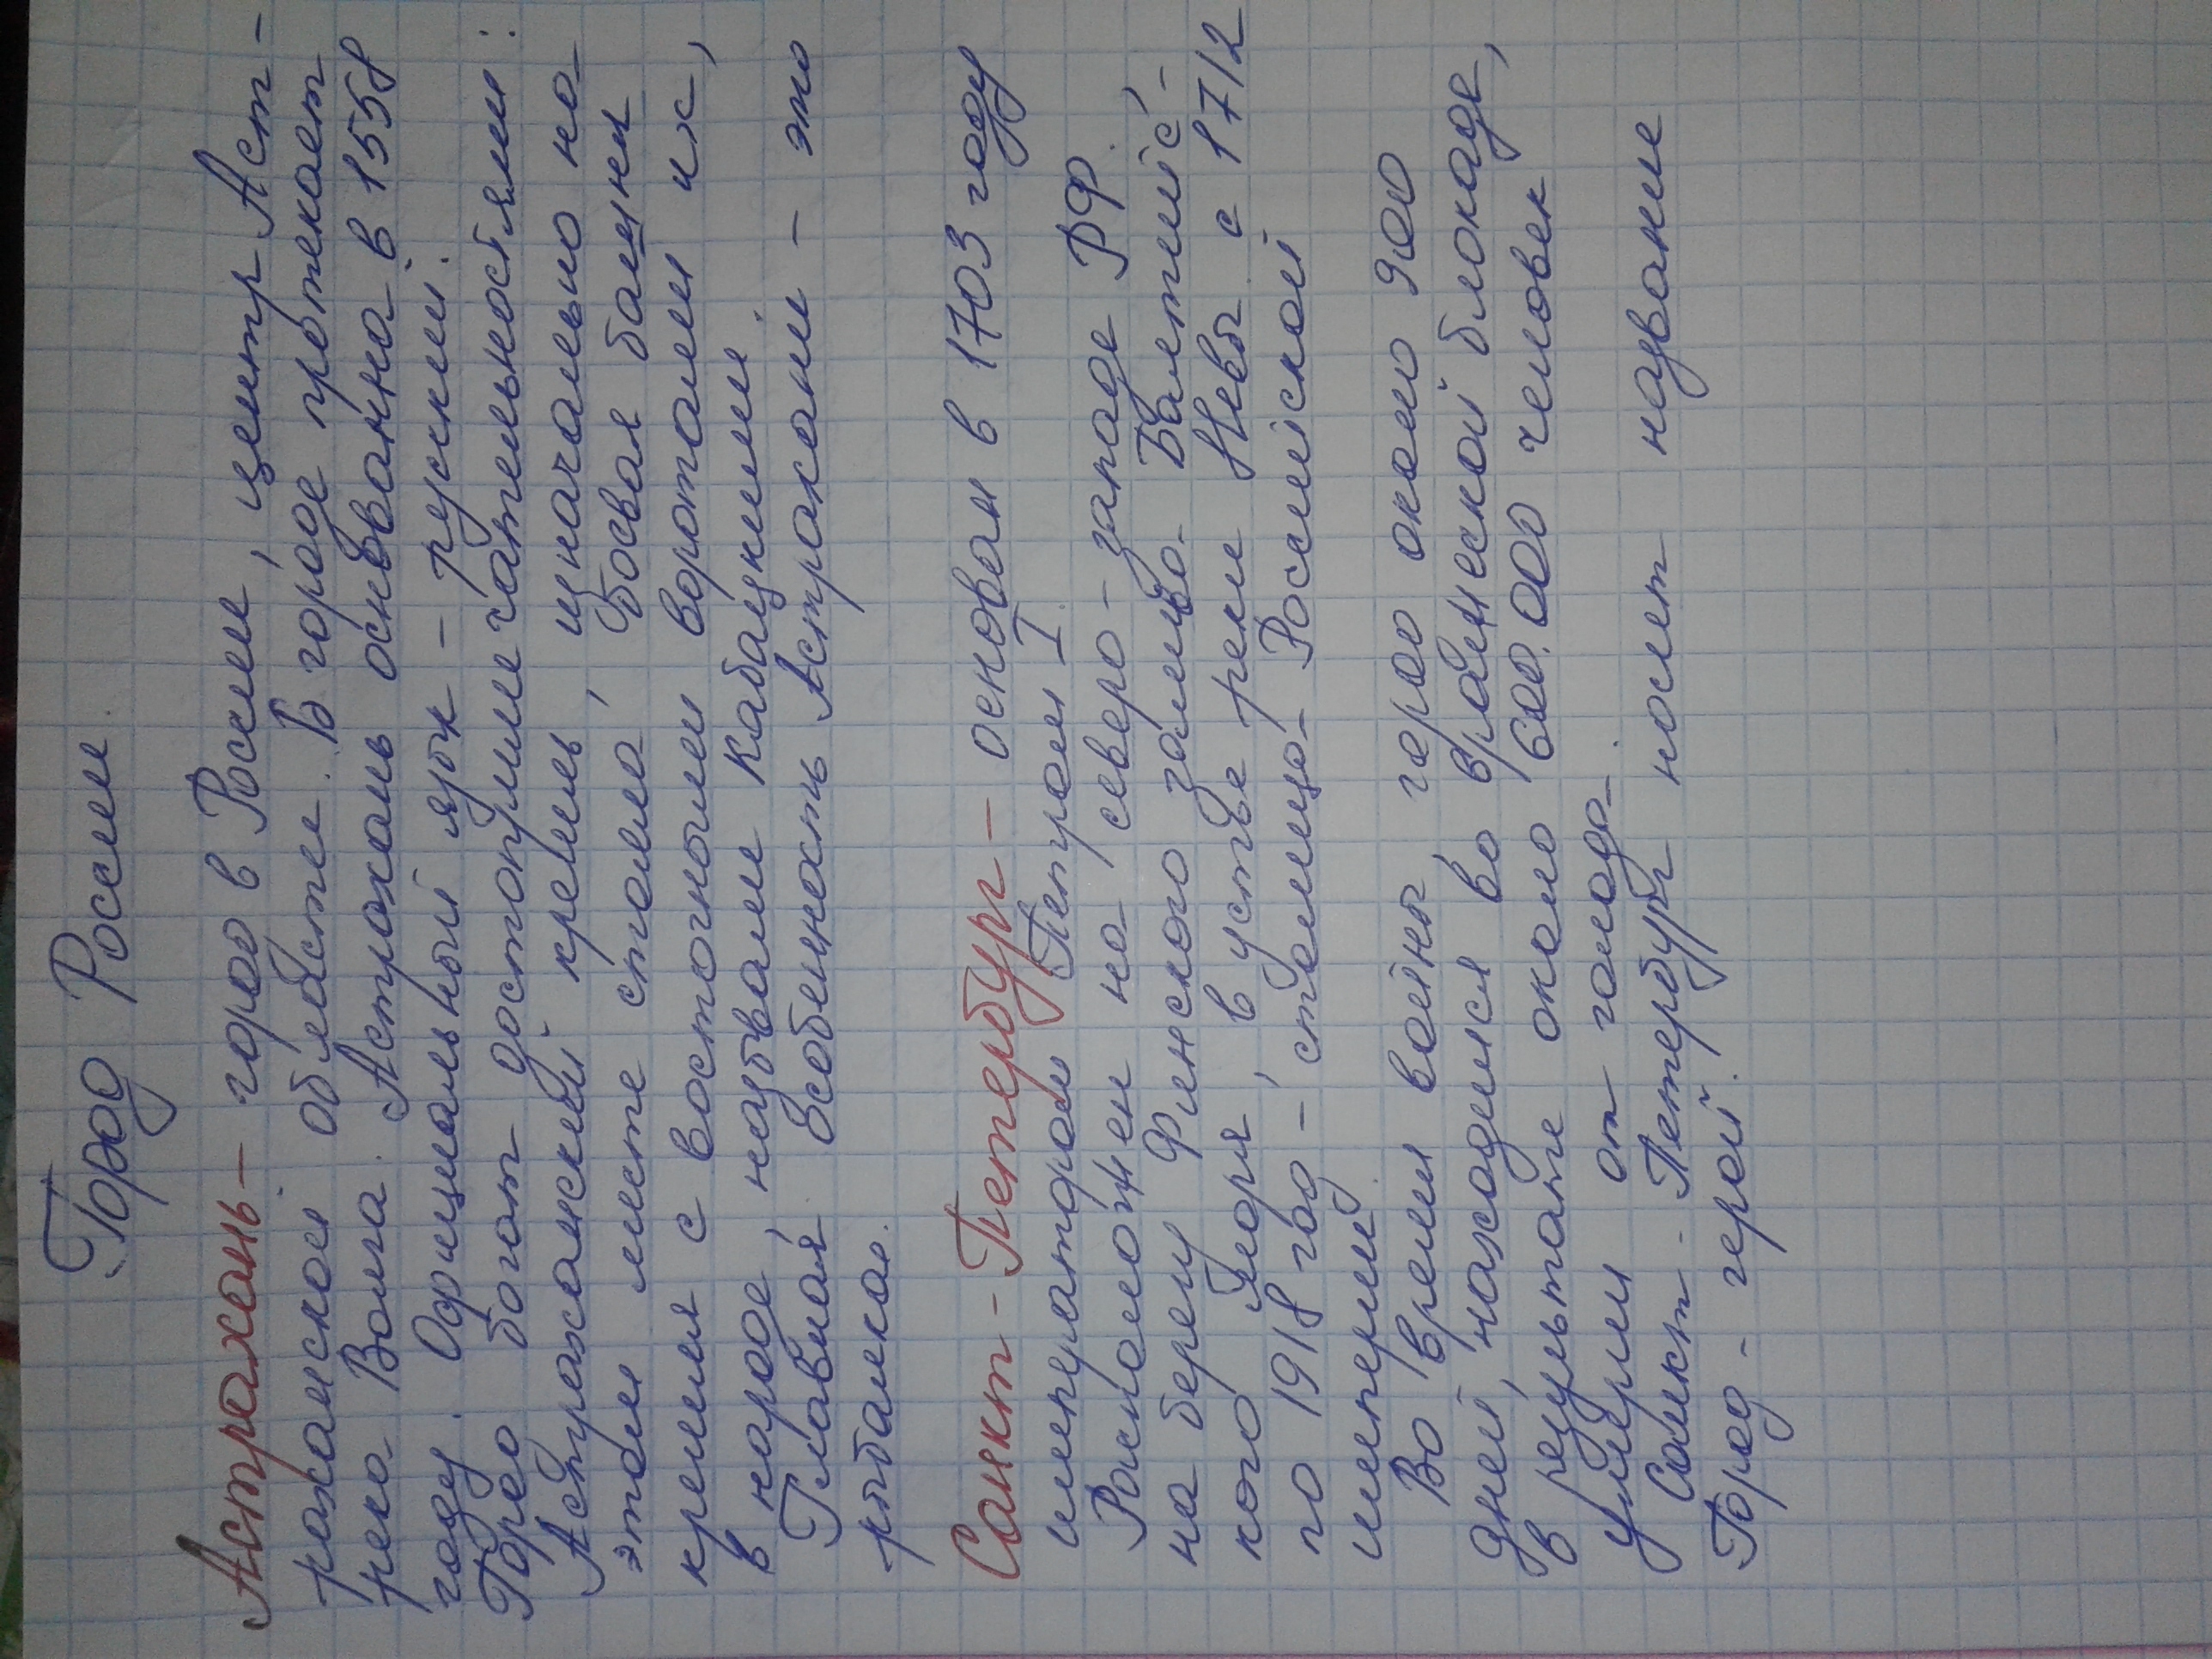 Город России
Астрахань - город в России, центр Аст-
раханской области. В городе протекает
река Волга. Астрахань основанна в 1558
году. Официальный язык - русский.
Город богат достопримечательностями:
Астраханский кремль, изначально на
этом месте стояла боевая башня
кремля с восточными воротами их,
в народе, назвали Кабацкими.
Главная особенность Астрахани - это
рыбалка.
Санкт-Петербург - основан в 1703 году
императором Петром I.
Расположен на северо-западе РФ,
на берегу Финского залива Балтийс-
кого моря, в устье реки Невы с 1712
по 1918 год - столица Российской
империи.
Во время войны город около 900
дней, находился во вражеской блокаде,
в результате около 600.000 человек
умерли от голода.
Санкт-Петербург носит название
Город-герой.